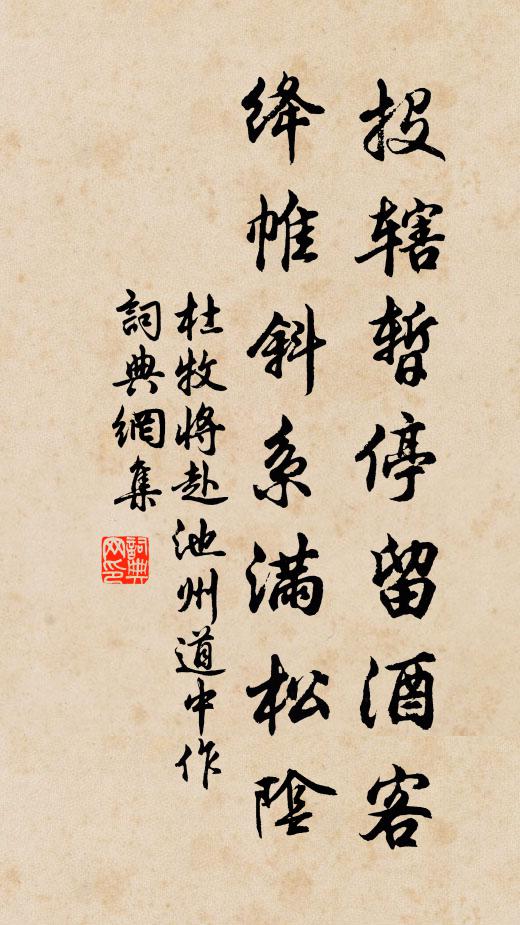 投辖暂停留酒客
绛帷斜系满松陰
杜牧将赴池州道中作
詞典網集
詞典
网印